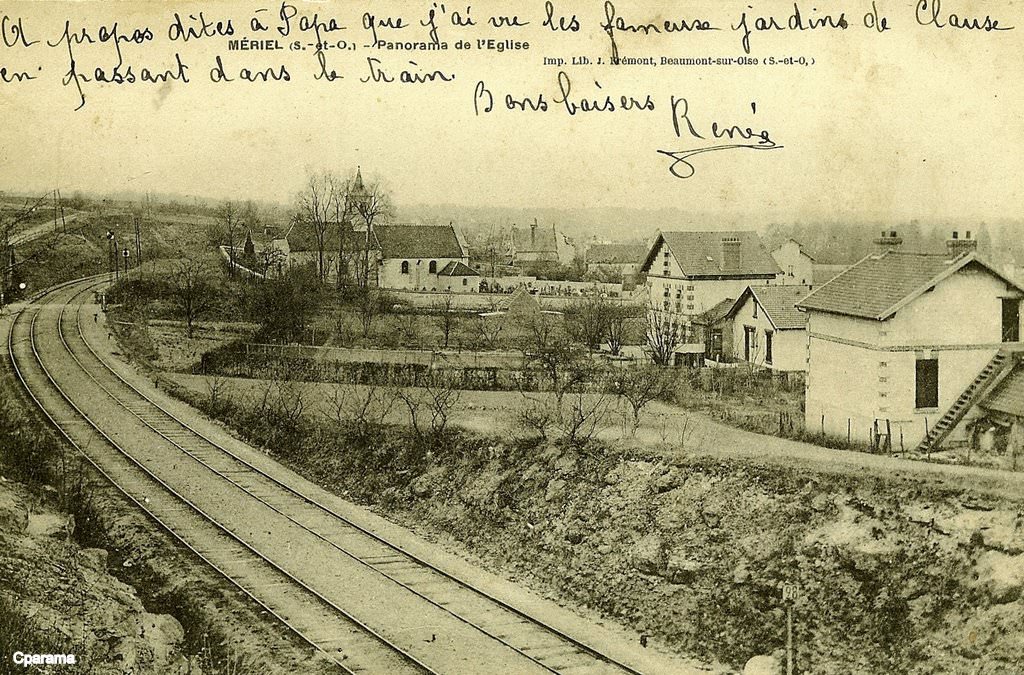 A propos dites à Papa que j'ai vu les fameuse jardins de Clause
MÉRIEL (S.-et-O.) - Panorama de l'Eglise
Imp. Lib. J. Frémont, Beaumont-sur-Oise (S.-et-O,)
en passant dans le train.
Bons baisers
Renée
Cparama